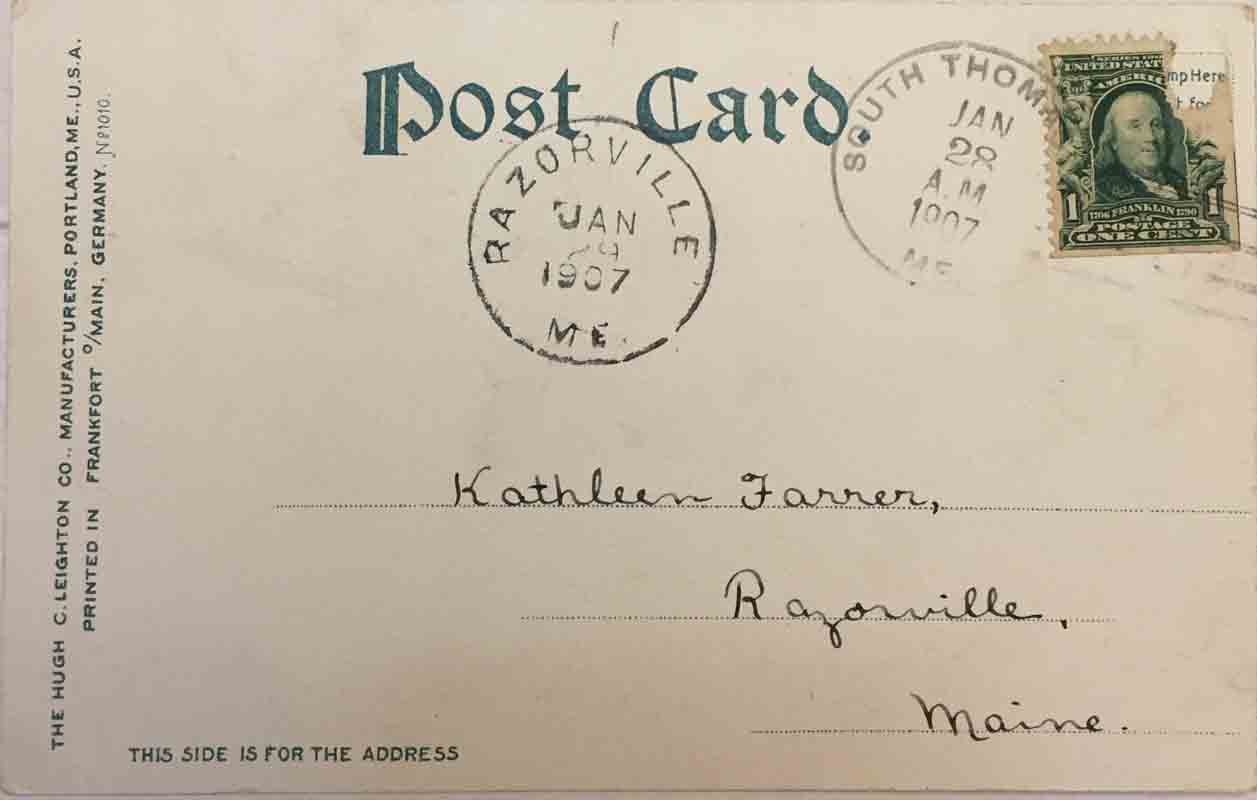 Post Card.
THE HUGH C. LEIGHTON CO., MANUFACTURERS, PORTLAND, ME., U.S.A.
PRINTED IN FRANKFORT º/MAIN, GERMANY. Nº1010.
RAZORVILLE
JAN
29
1907
ME.
SOUTH THOM
JAN
28
A.M
1907
ME
SERIES 190
UNITED STAT
AMERIC
1 1
1706 FRANKLIN 1790
POSTAGE
ONE CENT
mp Here
t fo
Kathleen Farrer,
Razorville,
Maine.
THIS SIDE IS FOR THE ADDRESS